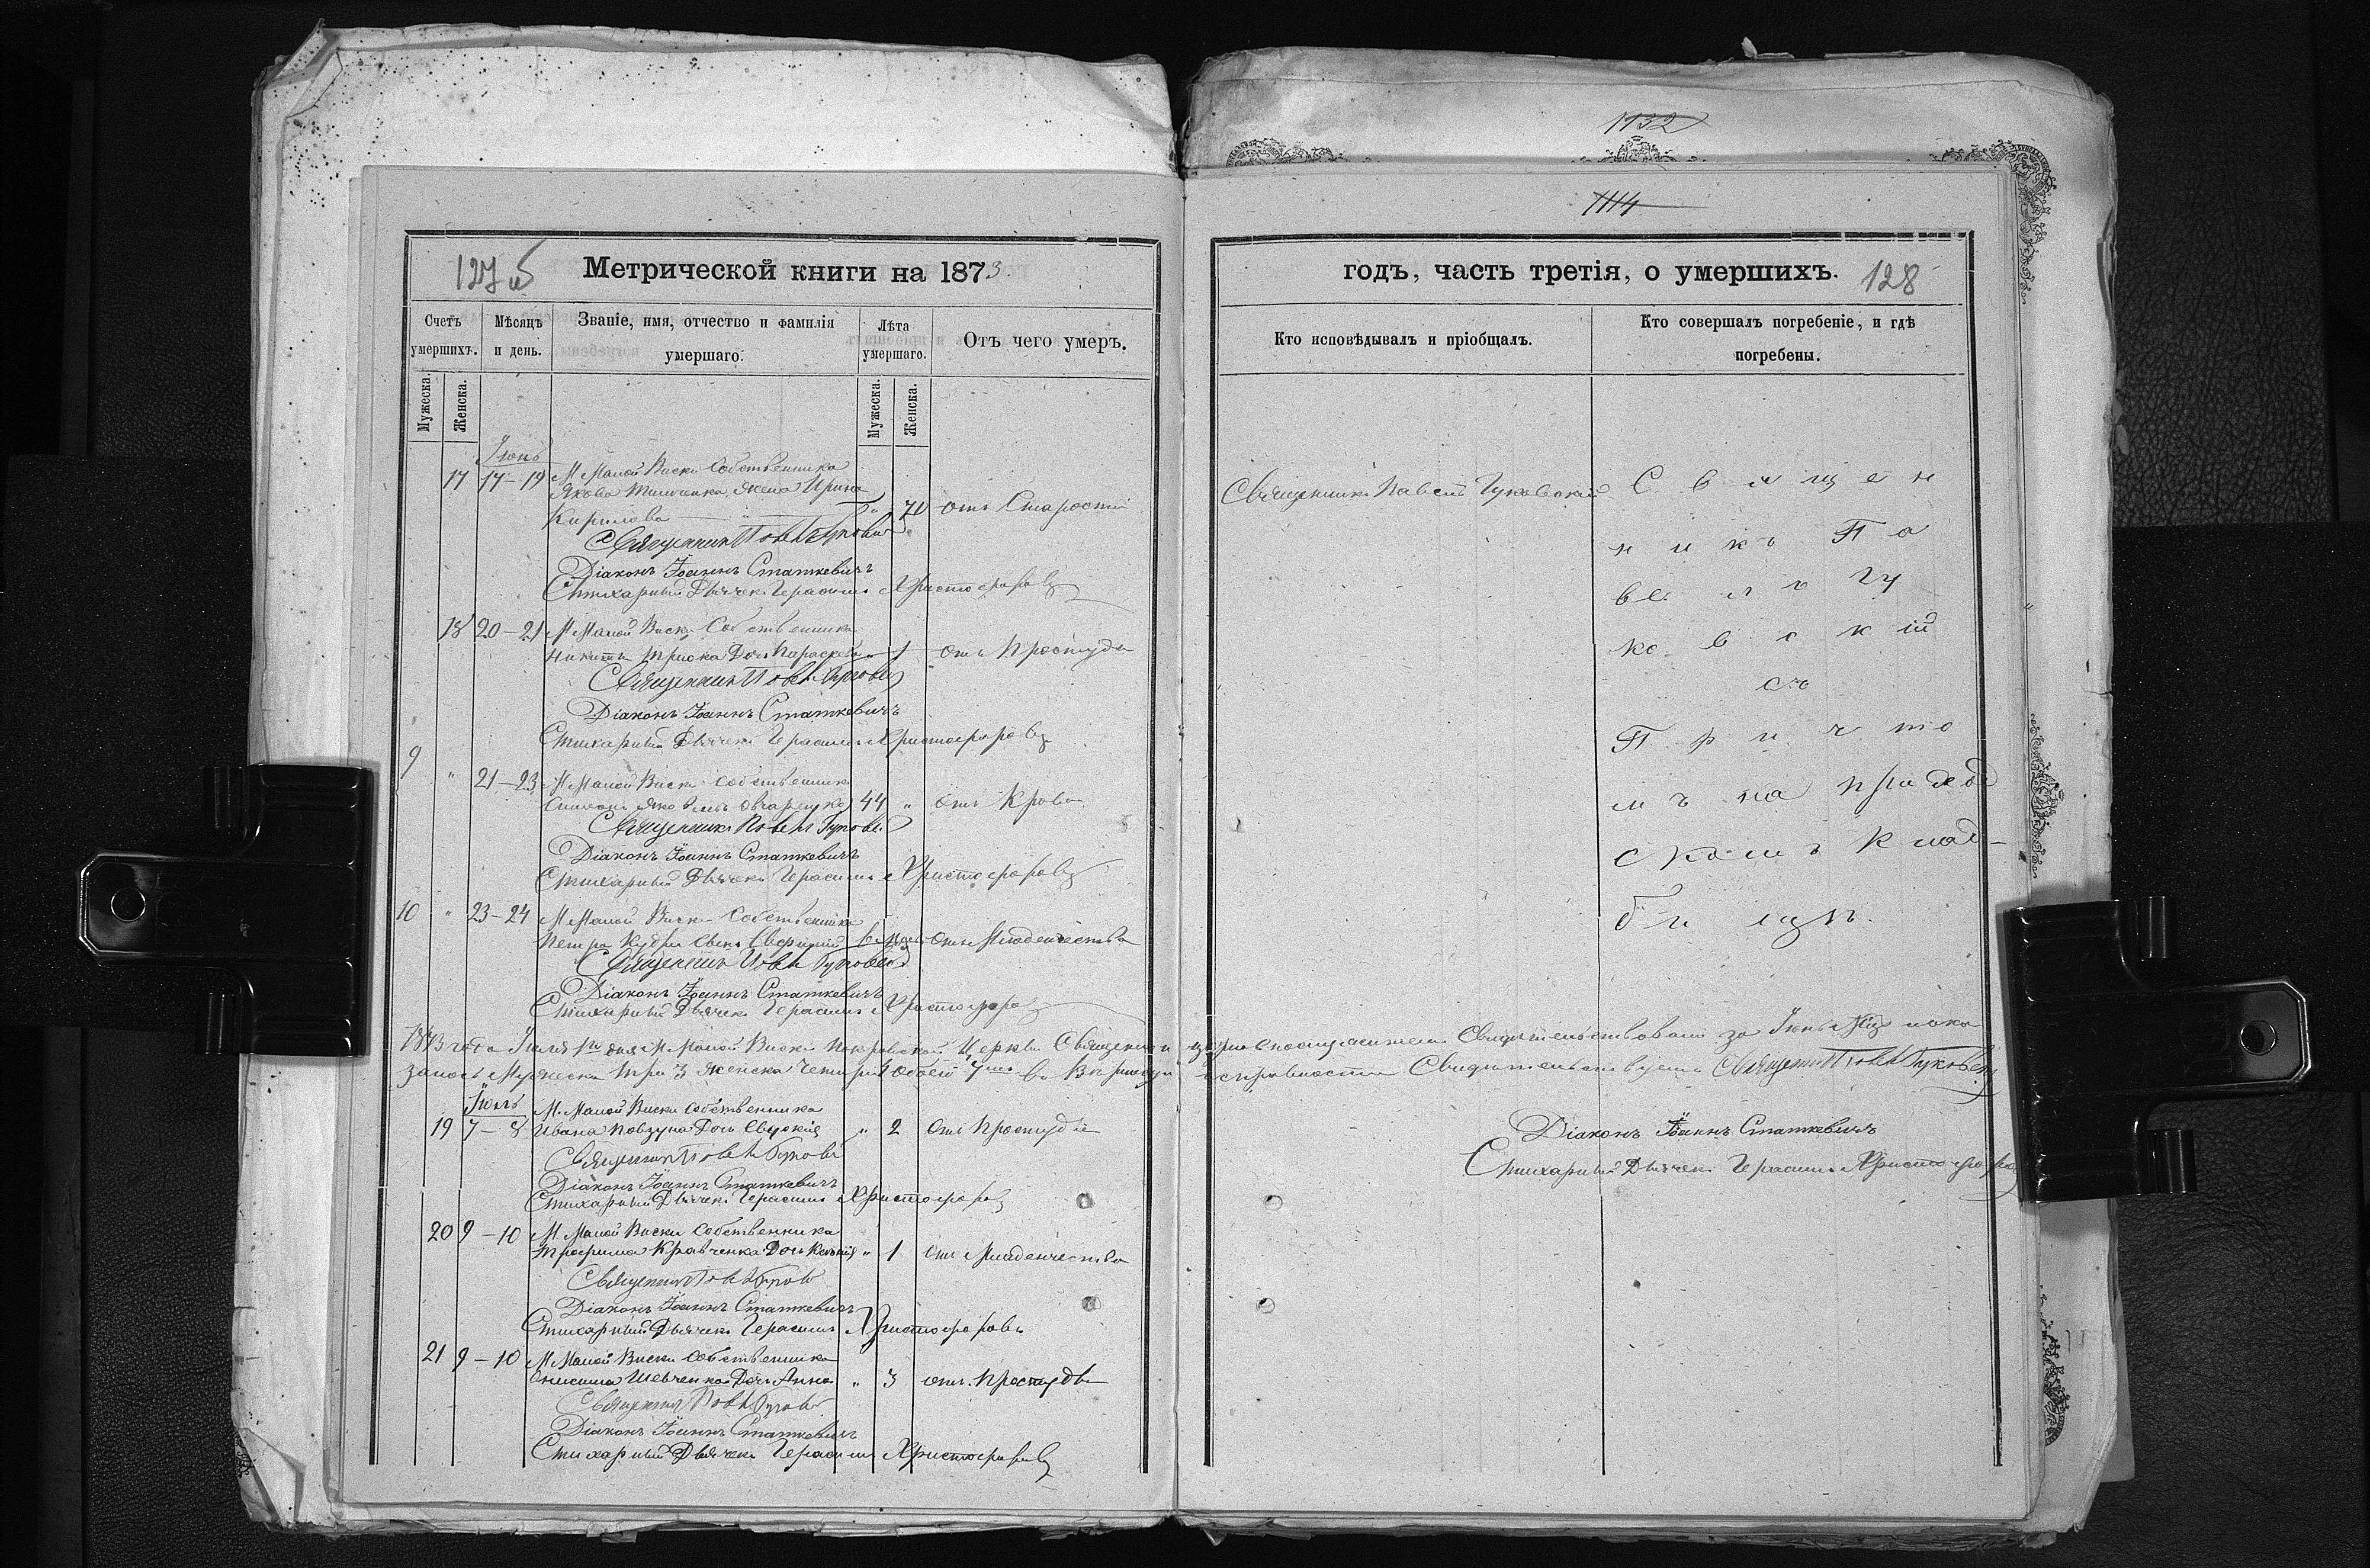 1132
1114
127 об
Метрической книги на 1873
Счетъ умершихъ.
Мѣсяцъ и день.
Званіе, имя, отчество и фамилія умершаго.
Лѣта умершаго.
Отъ чего умеръ.
Мужеска.
Женска.
Мужеска.
Женска.
Іюнь
17 17–19 М Малой Виски Собственника
Якова жена Ирина
Кирилова " 70 отъ Старости
Священникъ Павелъ Гуковскій
Діаконъ Іоаннъ Статкевичъ
Стихарный Дьячекъ Герасимъ Христофоровъ
18 20–21 М Малой Виски Собственника
Никиты Дочь Параскева " 1 отъ Простуды
Священникъ Павелъ Гуковскій
Діаконъ Іоаннъ Статкевичъ
Стихарный Дьячекъ Герасимъ Христофоровъ
9 " 21–23 М Малой Виски Собственникъ
Симеонъ Яковлевъ Овчаренко 44 " отъ Крови
Священникъ Павелъ Гуковскій
Діаконъ Іоаннъ Статкевичъ
Стихарный Дьячекъ Герасимъ Христофоровъ
10 " 23–24 М Малой Виски Собственника
Петра Сынъ 6 отъ Младенчества
Священникъ Павелъ Гуковскій
Діаконъ Іоаннъ Статкевичъ
Стихарный Дьячекъ Герасимъ Христофоровъ
1873 года Іюля 1го дня М Малой Виски Покровской Церкви Священно и церковнослужители Свидѣтельствовали за Іюнь Мцъ пока
залось Мужеска три 3 Женска четыре 4 обоего 7 въ исправности Свидѣтельствуемъ Священникъ Павелъ Гуковскій
Діаконъ Іоаннъ Статкевичъ
Стихарный Дьячекъ Герасимъ Христофоровъ
Іюль
19 7–8 М. Малой Виски Собственника
Ивана Повзуна Дочь Евдокія " 2 отъ Простуды
Священникъ Павелъ Гуковскій
Діаконъ Іоаннъ Статкевичъ
Стихарный Дьячекъ Герасимъ Христофоровъ
20 9–10 М. Малой Виски Собственника
Трофима Кравченка Дочь " 1 отъ Младенчества
Священникъ Павелъ Гуковскій
Діаконъ Іоаннъ Статкевичъ
Стихарный Дьячекъ Герасимъ Христофоровъ
21 9–10 М Малой Виски Собственника
Онисима Шевченка Дочь Анна " 3 отъ Простуды
Священникъ Павелъ Гуковскій
Діаконъ Іоаннъ Статкевичъ
Стихарный Дьячекъ Герасимъ Христофоровъ
годъ, часть третія, о умершихъ.
128
Кто исповѣдывалъ и пріобщалъ.
Кто совершалъ погребеніе, и гдѣ погребены.
Священникъ Павелъ Гуковскій
Священ
никъ Па
велъ Гу
ковскій
съ
Причто
мъ на приход
скомъ Клад-
бищѣ.